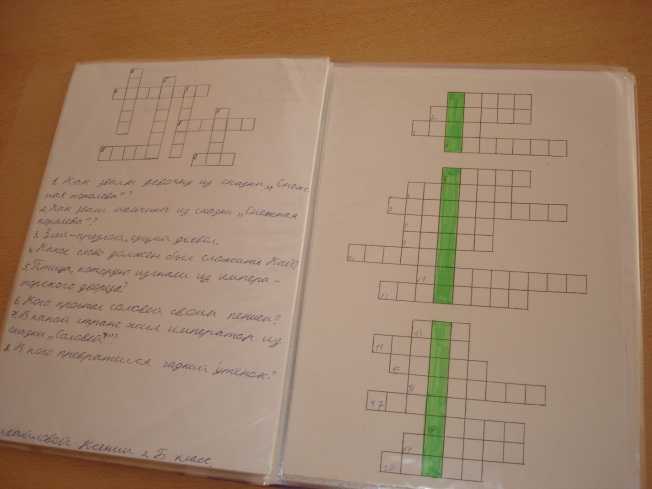 1. Как звали девочку из сказки „Снеж
ная королева"?
2. Как звали мальчика из сказки „Снежная
королева"?
3. Злой-презлой, сущий дьявол.
4. Какое слово должен был сложить Кай?
5. Птица, которую изгнали из импера -
торского дворца?
6. Кого прогнал соловей своим пением?
7. В какой стране жил император из
сказки „Соловей"?
8. В кого превратился гадкий утёнок?
Ксении 2 Б класс